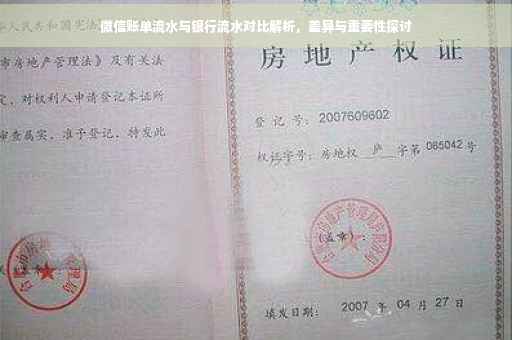 微信账单流水与银行流水对比解析，差异与重要性探讨
人民共和国宪法
市房地产管理法》及有关
定，对权利人申请登记本证所
审查属实，准予登记，特发此
房地产权证
登记号：2007609602
权证字号：房地权 庐 字第 065042 号
（盖章）：
填发日期：2007 年 04 月 27 日